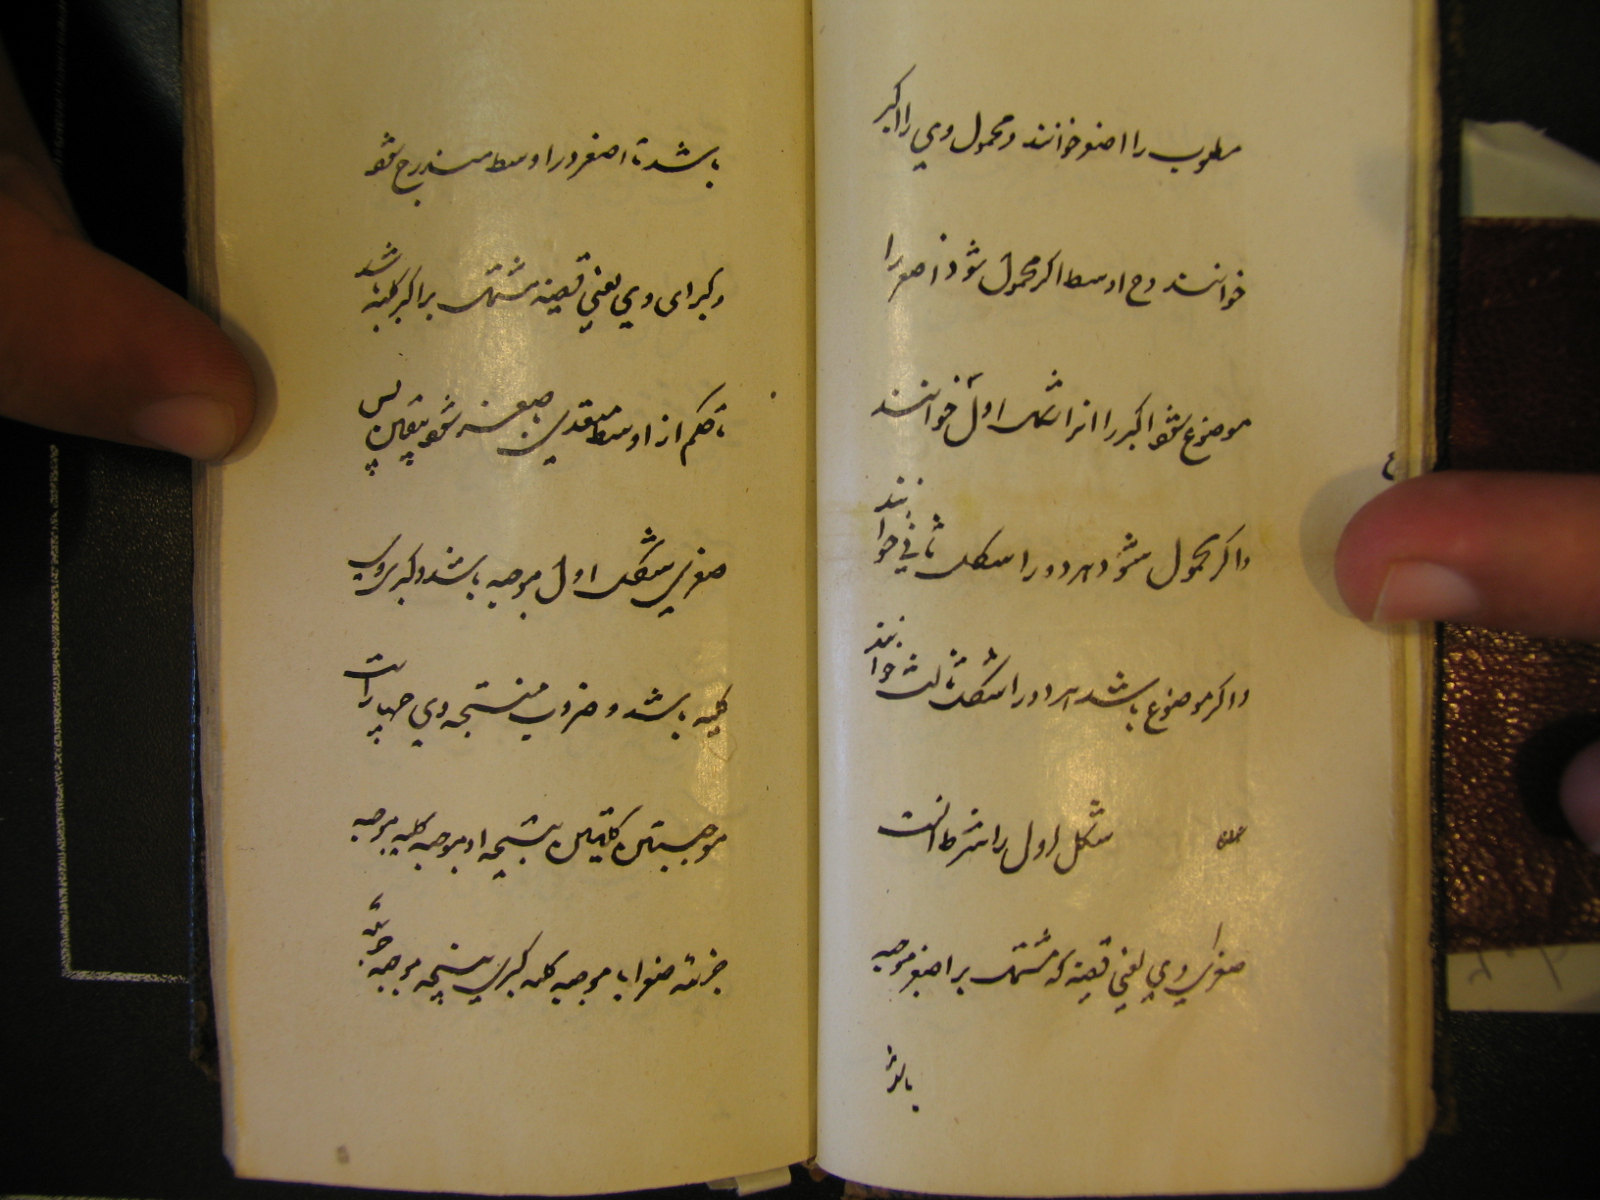 مطلوب را اصغر خوانند و محمول وي را اكبر
خوانند و ح اوسط اكر محمول شود اصغر را
موضوع شود اكبر را انرا شكل اول خوانند
و اكر محمول شود هر دو را شكل ثاني خوانند
و اكر موضوع باشد هر دو را شكل ثالث خوانند
شكل اول را شرط انست
صغراي وي يعني قضيه كه مشتمل بر اصغر موجبه
باشد
باشد تا اصغر در اوسط مندرج شود
و كبراى وي يعني قضيه مشتمل بر اكبر كليه باشد
تا حكم از اوسط متعدي باصغر شود بيقين پس
صغري شكل اول موجبه باشد و كبري وي
كليه باشد و ضروب منتجه وي چهار است
موجبتين كليتين نتيجه او موجبه كليه موجبه
جزئيه صغرا با موجبه كليه كبري نتيجه موجبه جزئيه